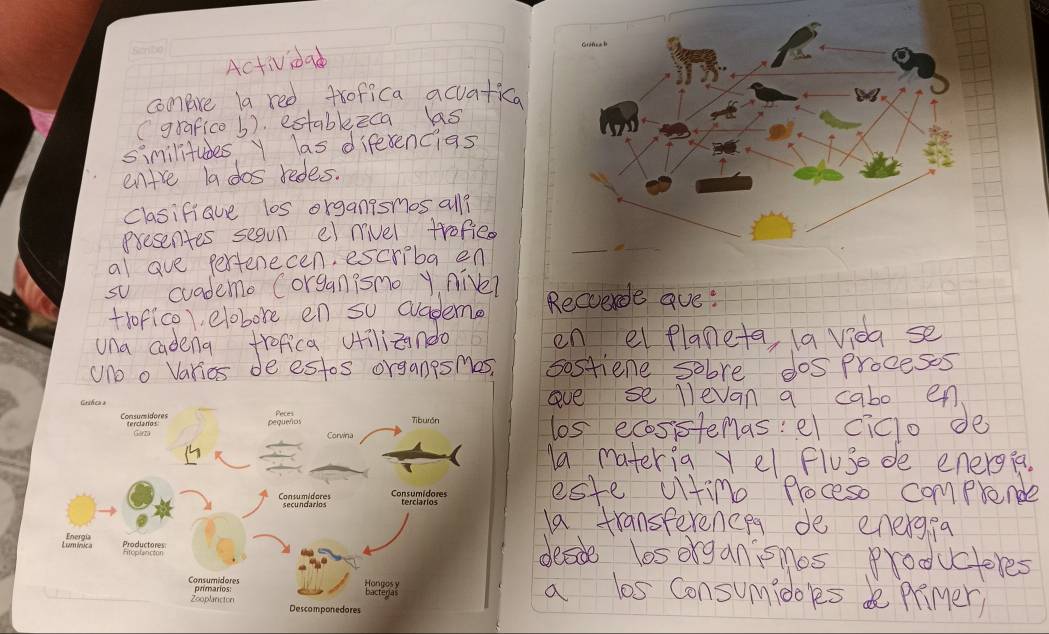 Scribe
Actividad
compare la red trofica acuatica
(grafico b). establezca las
similitudes y las diferencias
entre la dos redes.
clasifique los organismos alli
presentes segun el nivel trofico
al que pertenecen. escriba en
su cuaderno (organismo y nivel
trofico). elobore en su cuaderno
una cadena trofica utilizando
uno o varios de estos organismos.
Gráfica a
Consumidores
terciarios:
Garza
Peces
pequeños
Corvina
Tiburón
Consumidores
secundarios
Consumidores
terciarios
Energía
Lumínica
Productores:
Fitoplancton
Consumidores
primarios:
Zooplancton
Hongos y
bacterias
Descomponedores
Gráfica b
Recuerde que:
en el planeta, la vida se
sostiene sobre dos procesos
que se llevan a cabo en
los ecosistemas: el ciclo de
la materia y el flujo de energia.
este ultimo proceso comprende
la transferencia de energia
desde los organismos productores
a los consumidores de primer,